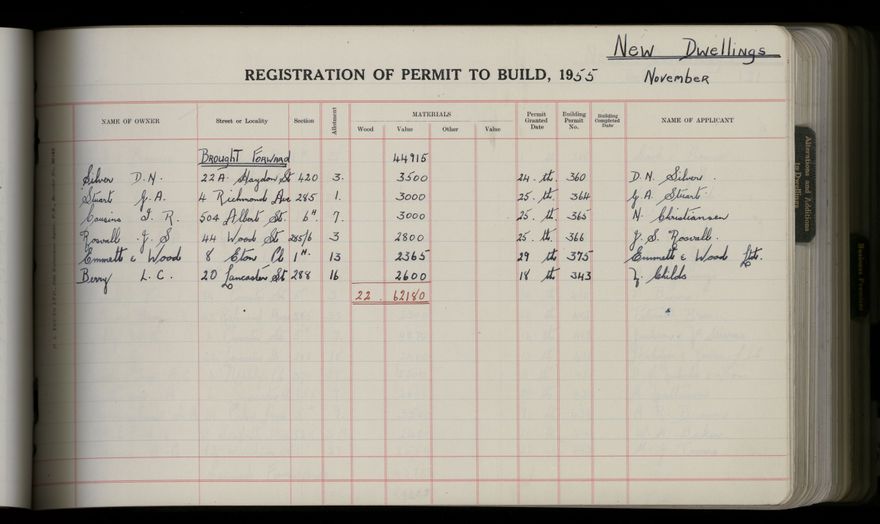 New Dwellings
REGISTRATION OF PERMIT TO BUILD, 1955 November
NAME OF OWNER Street or Locality Section Allotment MATERIALS Permit Granted Date Building Permit No. Building Completed Date NAME OF APPLICANT
Wood Value Other Value
Brought Forward 44915
Silver D.N. 22A Haydon St 420 3. 3500 24 th 360 D.N. Silver.
Stuart G.A. 4 Richmond Ave 285 1. 3000 25. th. 364 G.A. Stuart.
Cousins I. R. 504 Albert St. 6" 7. 3000 25. th. 365 N. Christiansen
Rosvall J. S 44 Wood St 285/6 3 2800 25. th. 366 J. S. Rosvall.
Emmett & Wood 8 Eton Cl 1". 13 2365 29 th 375 Emmett & Wood Ltd.
Berry L.C. 20 Lancaster St 288 16 2600 18 th 343 Childs
22. 62180
Alterations and Additions to Dwellings
Business Premises